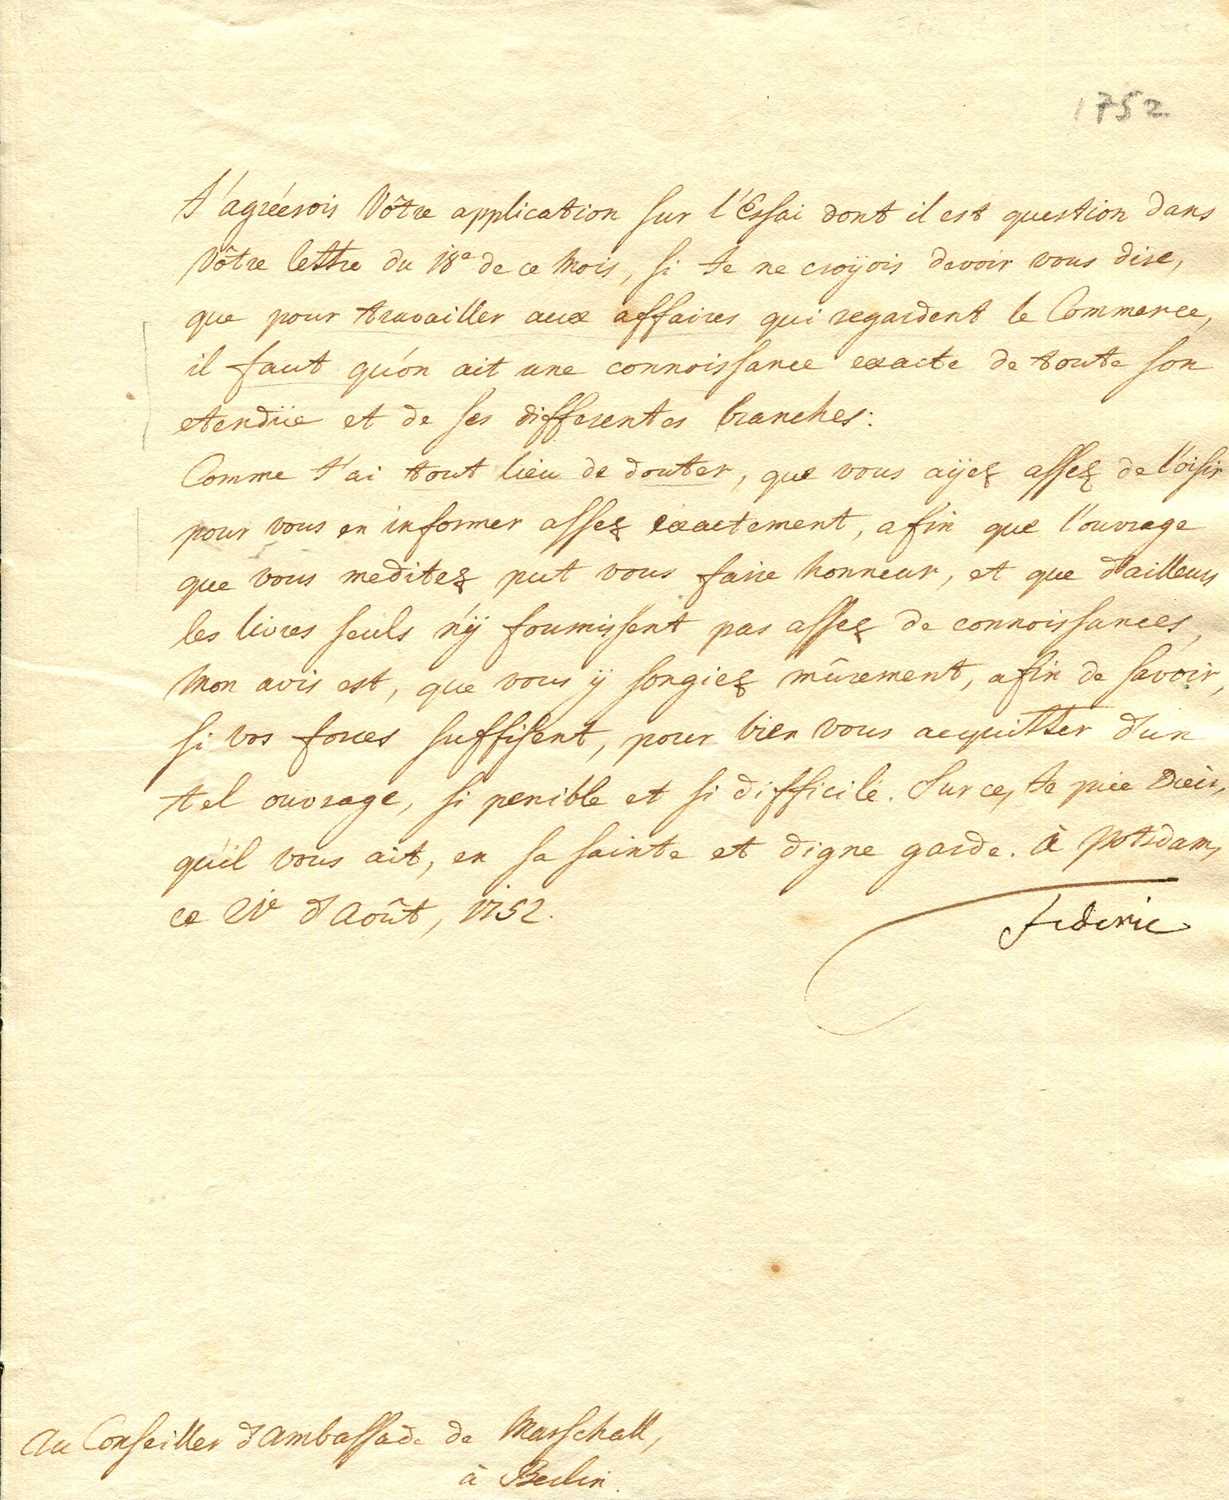 1752
J'agréerois Vôtre application sur l'Essai dont il est question dans
Vôtre lettre du 18e de ce Mois, si Je ne croÿois devoir vous dire,
que pour travailler aux affaires qui regardent le Commerce,
il faut qu'on ait une connoissance exacte de toute son
etendüe et de ses differentes branches:
Comme J'ai tout lieu de douter, que vous aÿez assez de l'oisir
pour vous en informer assez exactement, afin que l'ouvrage
que vous meditez put vous faire honneur, et que d'ailleurs
les livres seuls n'ÿ fournissent pas assez de connoissances,
Mon avis est, que vous ÿ songiez mûrement, afin de savoir,
si vos forces suffisent, pour bien vous acquitter d'un
tel ouvrage, si penible et si difficile. Sur ce, Je prie Dieu,
qu'il vous ait, en sa sainte et digne garde. à Potsdam,
ce d'Août, 1752.
Federic
Au Conseiller d'ambassade de Marschall,
à Berlin.